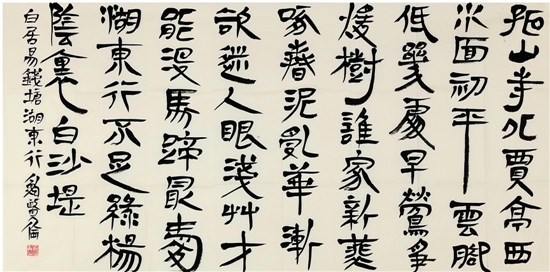 孤山寺北賈亭西
水面初平雲腳
低幾處早鶯爭
煖樹誰家新燕
啄春泥乱華漸
欲迷人眼淺艸才
能沒馬蹄最愛
湖東行不足綠楊
陰裏白沙堤
白居易錢塘湖東行